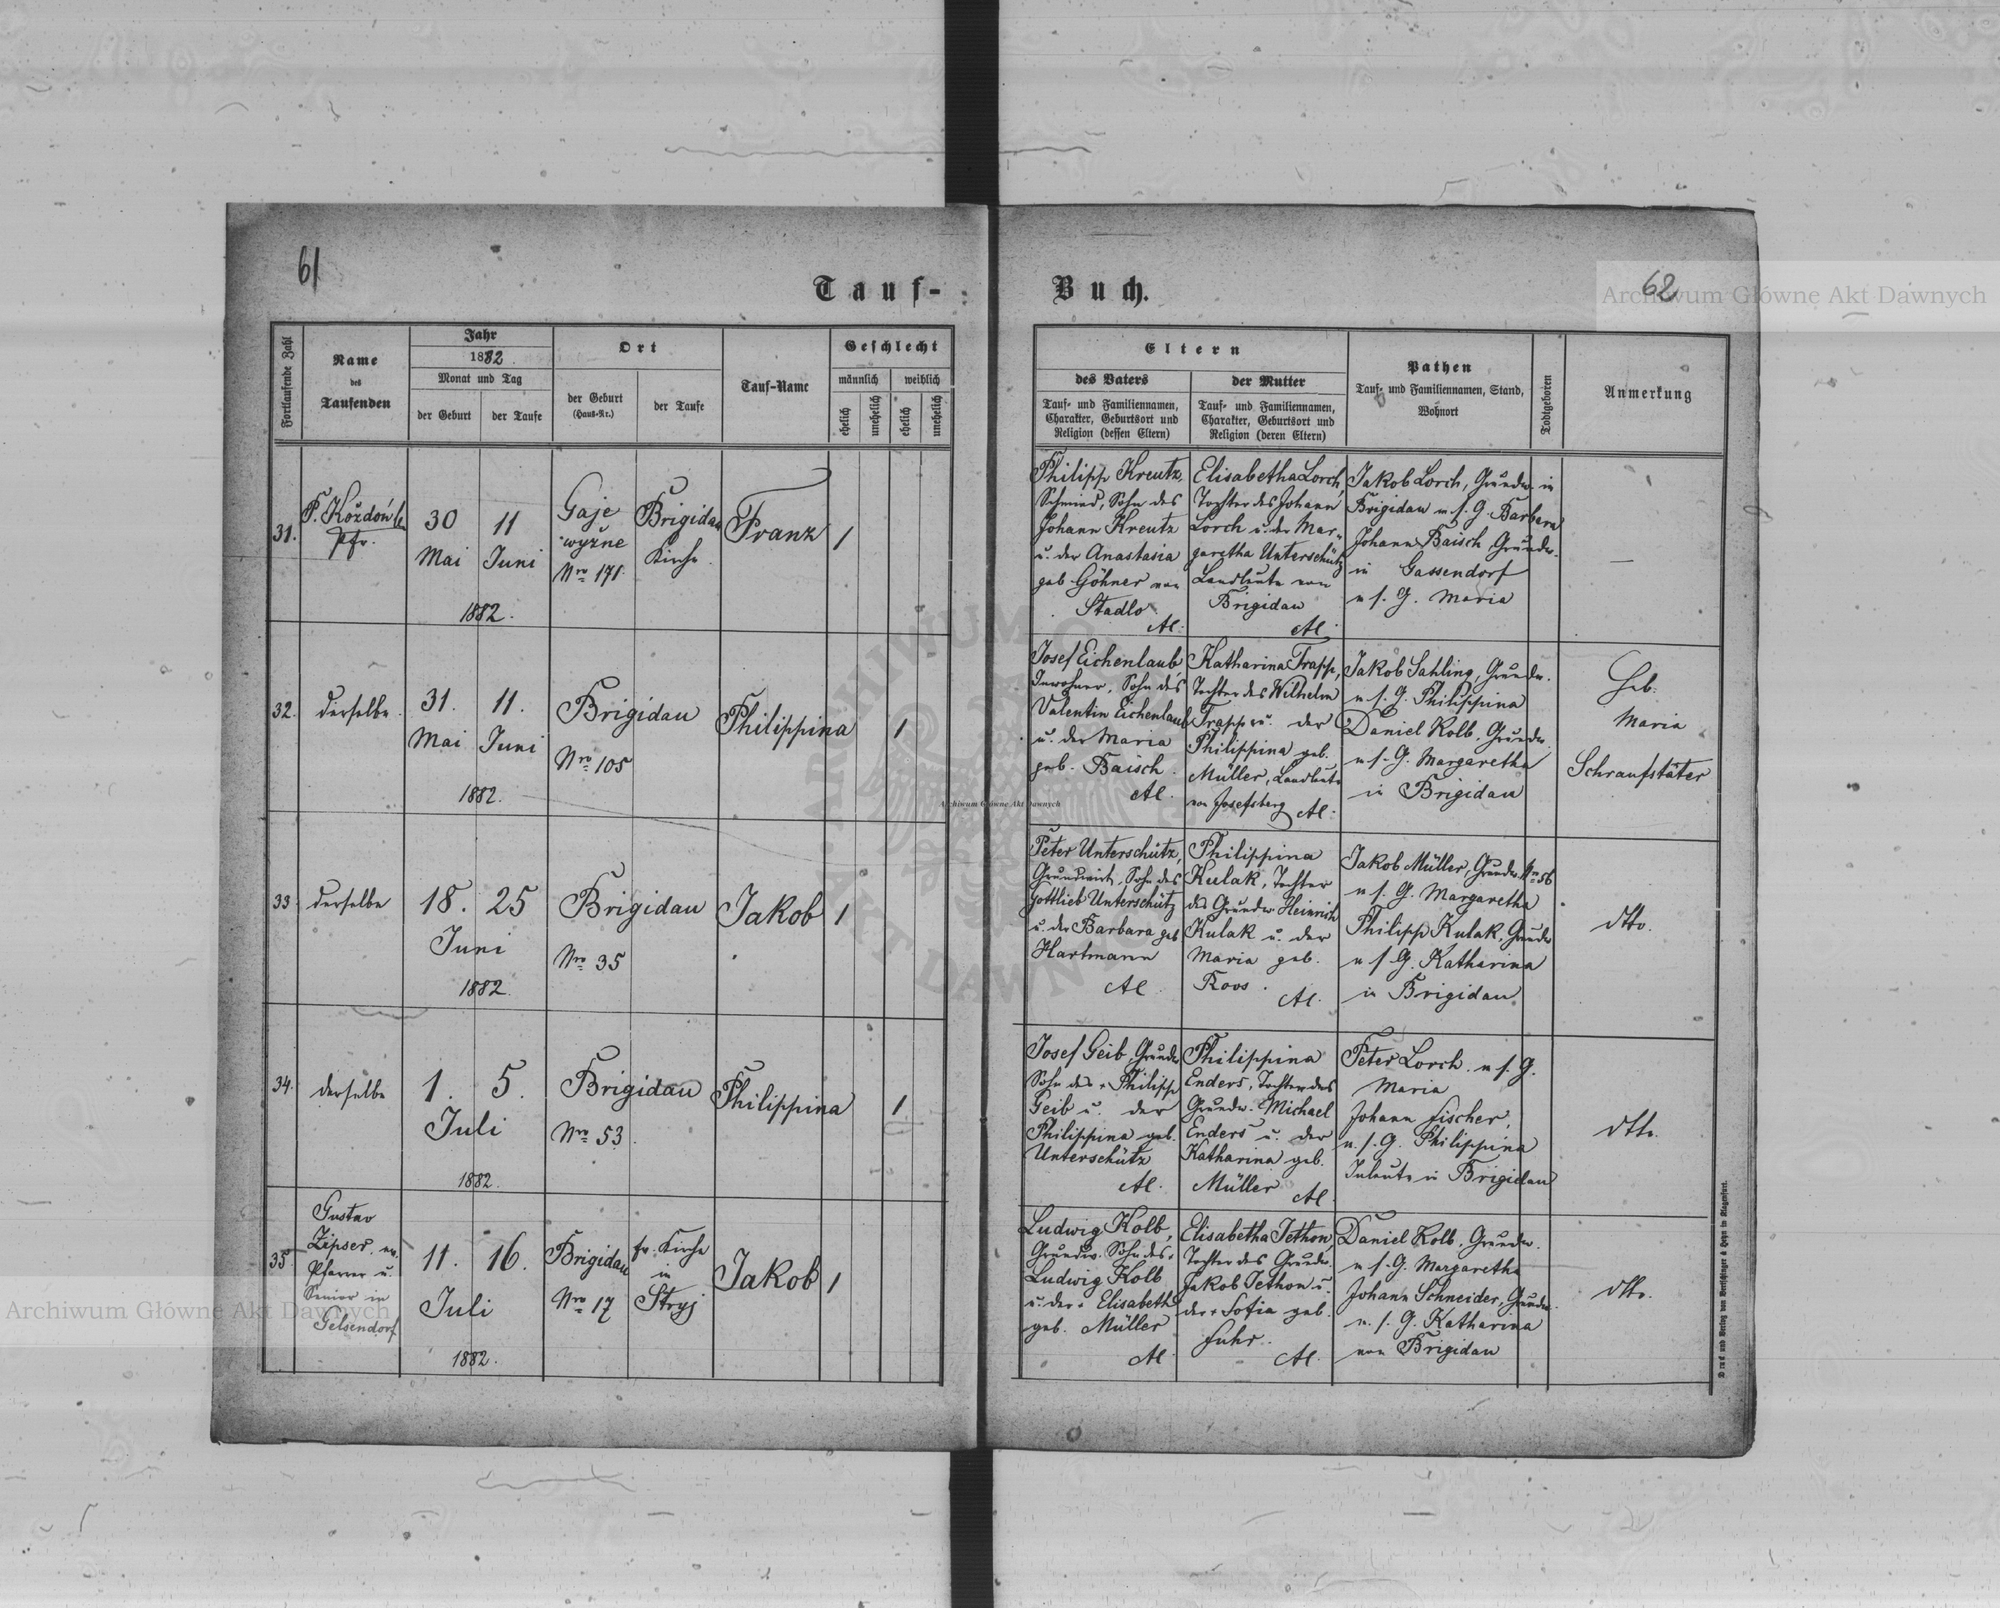 61
62
Tauf- Buch.
Fortlaufende Zahl
Name
des
Taufenden
Jahr
1882
Monat und Tag
der Geburt
der Taufe
Ort
der Geburt
(Haus-Nr.)
der Taufe
Tauf-Name
Geschlecht
männlich
weiblich
ehelich
unehelich
ehelich
unehelich
Eltern
des Vaters
Tauf- und Familiennamen,
Charakter, Geburtsort und
Religion (dessen Eltern)
der Mutter
Tauf- und Familiennamen,
Charakter, Geburtsort und
Religion (deren Eltern)
Pathen
Tauf- und Familiennamen, Stand,
Wohnort
Todtgeboren
Anmerkung
31.
Pfr.
30
Mai
11
Juni
1882.
Gaje
wyżne
Nro 171.
Brigidau
Kirche
Franz
1
Philipp Kreutz,
Schmied, Sohn des
Johann Kreutz
u. der Anastasia
geb Göhner von
Stadlo.
AC.
Elisabetha Lorch,
Tochter des Johann
Lorch u. der Mar-
garetha Unterschütz
Landleute von
Brigidau
AC.
Jakob Lorch, Grundw. in
Brigidau u s. G. Barbara
Johann Baisch Grundw.
in Gassendorf
u s. G. Maria
—
32.
derselbe.
31.
Mai
11.
Juni
1882.
Brigidau
Nro 105
Philippina
1
Josef Eichenlaub
Inwohner, Sohn des
Valentin Eichenlaub
u. der Maria
geb. Baisch.
AC.
Katharina Trapp,
Tochter des Wilhelm
Trapp u. der
Philippina geb.
Müller, Landleute
von Josefsberg AC.
Jakob Sahling, Grundw.
u s. G. Philippina
Daniel Kolb, Grundw.
u s. G. Margaretha
in Brigidau
Heb.
Maria
Schraufstäter
33.
derselbe
18.
25
Juni
1882.
Brigidau
Nro 35
Jakob
1
Peter Unterschütz,
Grundwirt, Sohn des
Gottlieb Unterschütz
u. der Barbara geb
Hartmann
AC.
Philippina
Kulak, Tochter
des Grundw. Heinrich
Kulak u. der
Maria geb.
Roos.
AC.
Jakob Müller, Grundw. Nro 56
u s. G. Margaretha
Philipp Kulak, Grundw
u s G. Katharina
in Brigidau
dtto.
34.
derselbe
1.
5.
Juli
1882.
Brigidau
Nro 53.
Philippina
1
Josef Geib, Grundw
Sohn des + Philipp
Geib u. der
Philippina geb.
Unterschütz
AC.
Philippina
Enders, Tochter des
Grundw. Michael
Enders u. der
Katharina geb.
Müller AC.
Peter Lorch u s. G.
Maria
Johann Fischer,
u. s. G. Philippina
Inleute in Brigidau
dtto.
35.
Gustav
Zipser, ev.
Pfarrer u.
Senior in
Gelsendorf
11.
16.
Juli
1882.
Brigidau
Nro 17
ev. Kirche
in
Stryj
Jakob
1
Ludwig Kolb,
Grundw. Sohn des +
Ludwig Kolb
u. der + Elisabeth
geb. Müller
AC.
Elisabetha Jethon,
Tochter des Grundw.
Jakob Jethon u.
der + Sofia geb.
Fuhr.
AC.
Daniel Kolb, Grundw.
u s. G. Margaretha
Johann Schneider, Grundw.
u. s. G. Katharina
von Brigidau
dtto.
Druck und Verlag von Bertschinger & Heyn in Klagenfurt.
Archiwum Główne Akt Dawnych
Archiwum Główne Akt Dawnych
Archiwum Główne Akt Dawnych